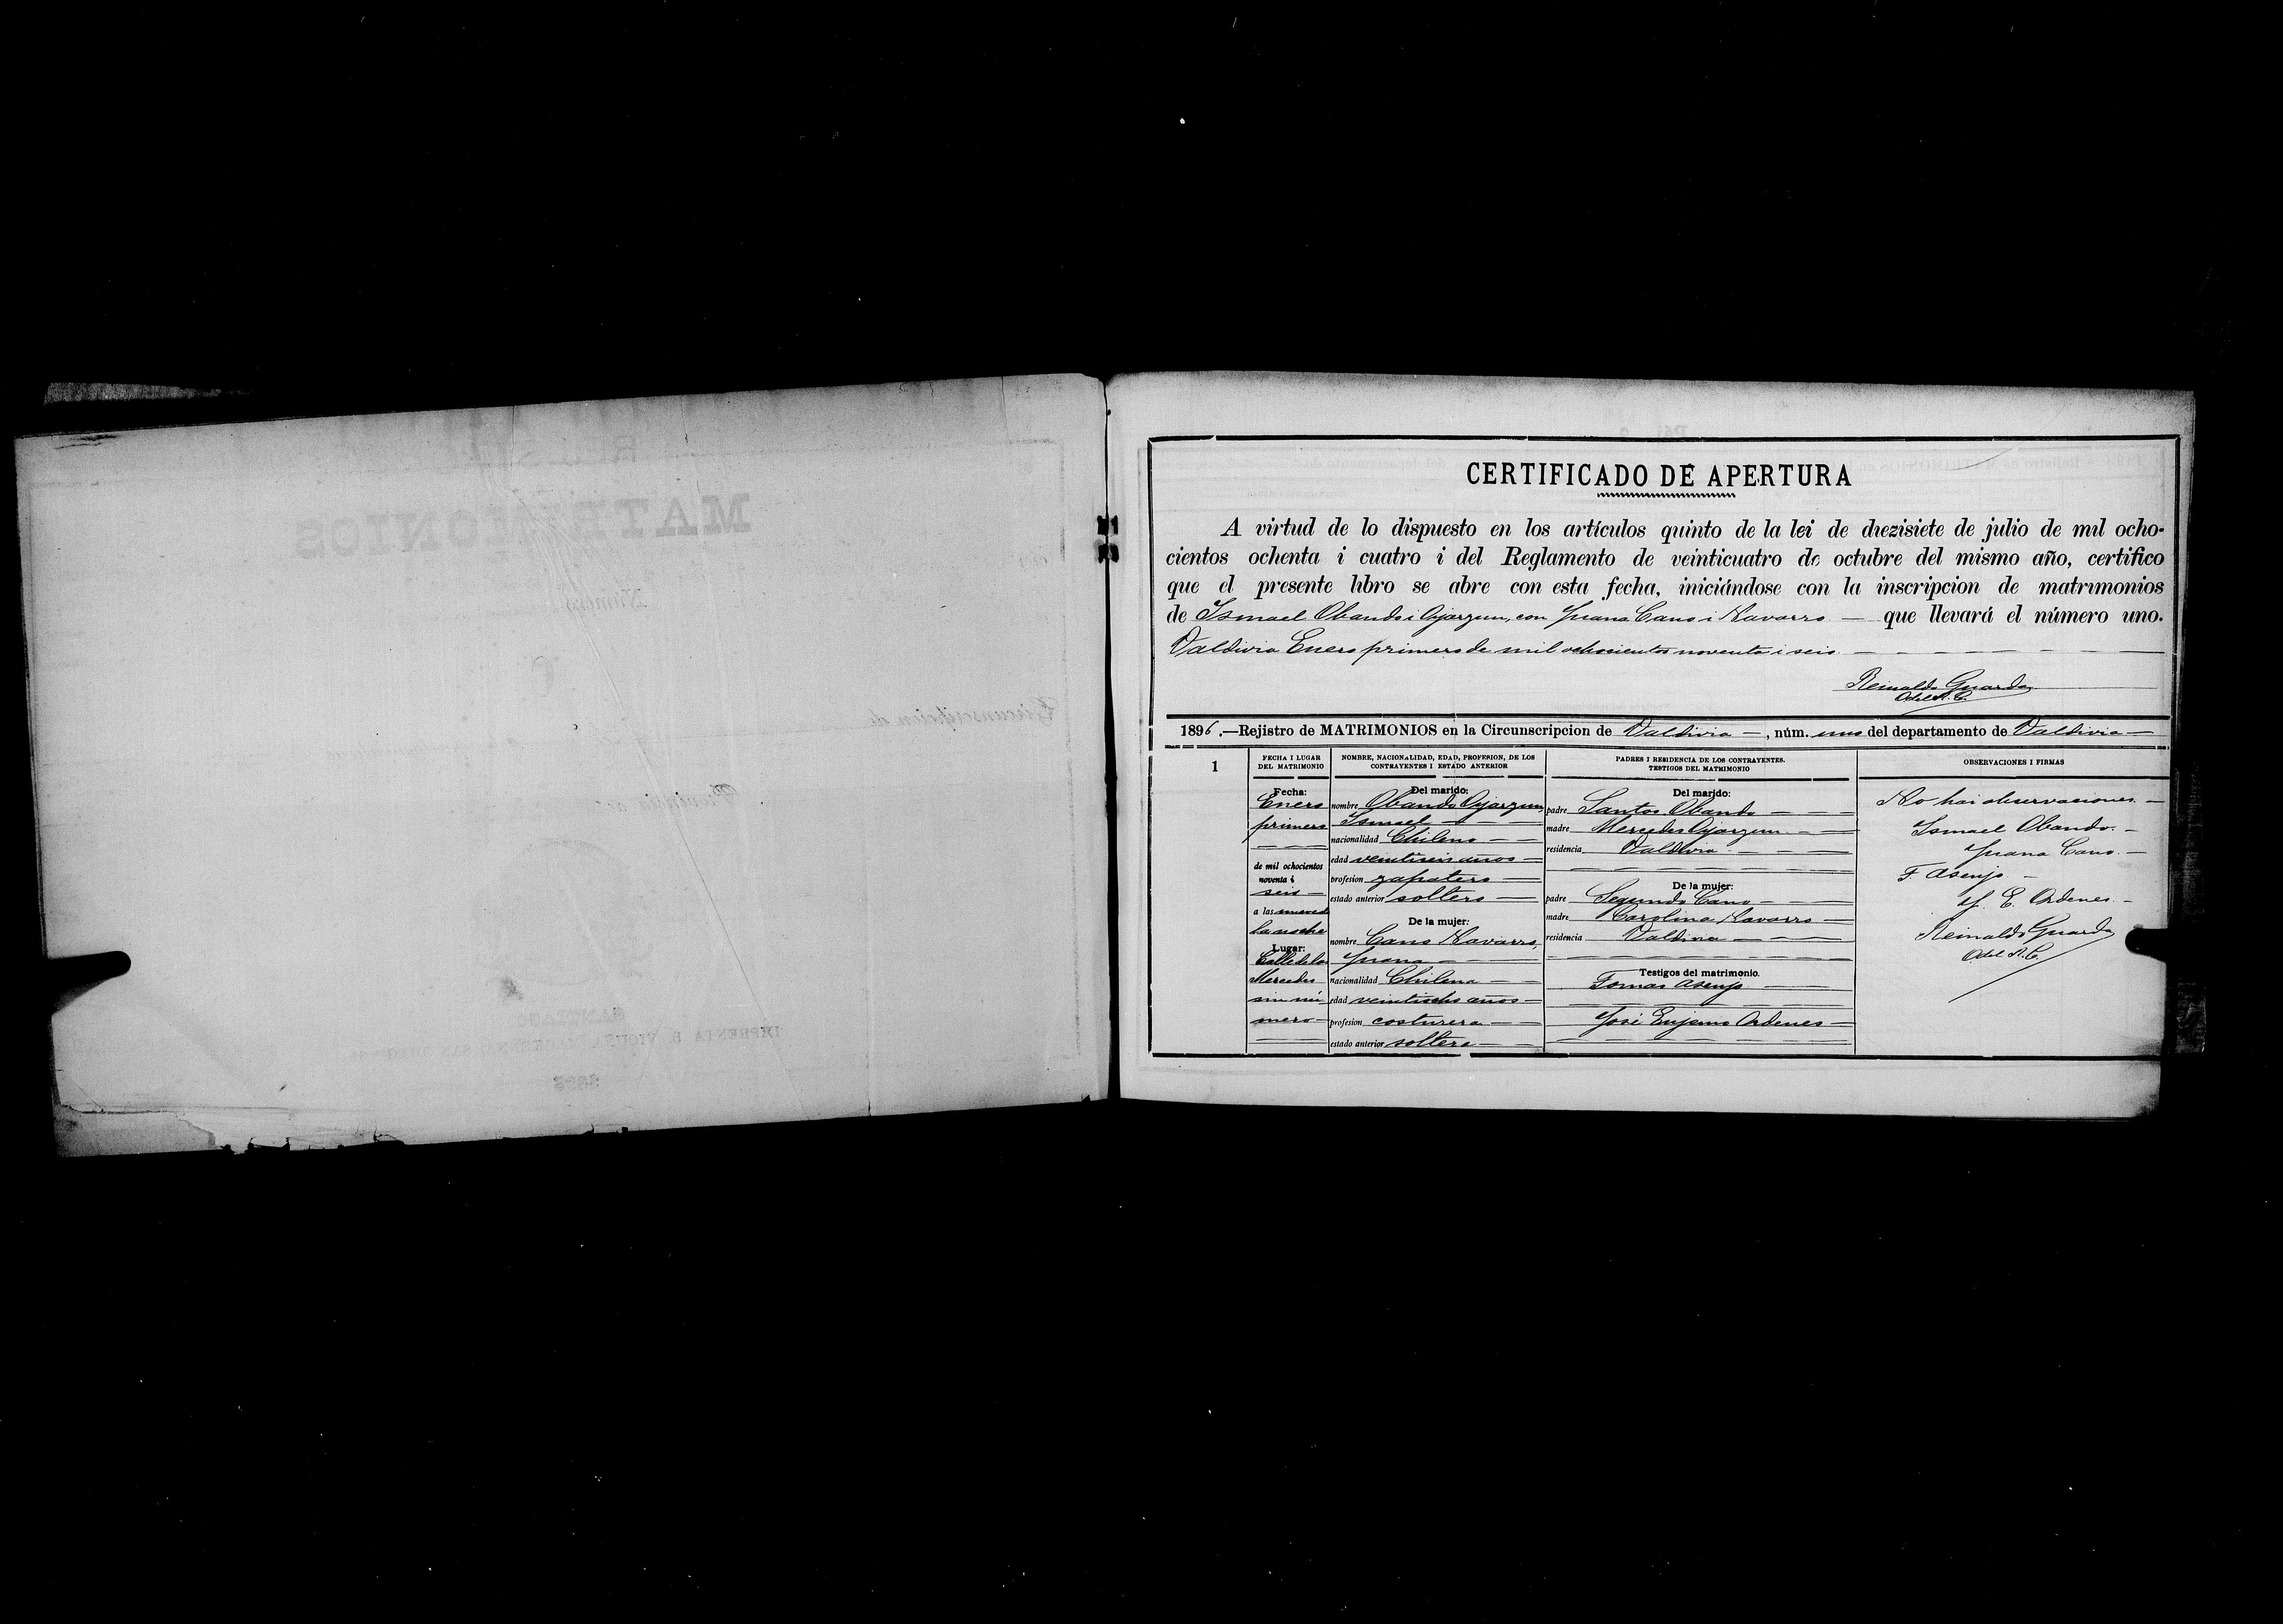 CERTIFICADO DE APERTURA
A virtud de lo dispuesto en los artículos quinto de la lei de diezisiete de julio de mil ocho-
cientos ochenta i cuatro i del Reglamento de veinticuatro de octubre del mismo año, certifico
que el presente libro se abre con esta fecha, iniciándose con la inscripcion de matrimonios
de Ismael Obando i Oyarzun, con Juana Cano i Navarro — que llevará el número uno.
Valdivia Enero primero de mil ochocientos noventa i seis
Reinaldo Guarda
O. del R. C.
1896.—Rejistro de MATRIMONIOS en la Circunscripcion de Valdivia —, núm. uno del departamento de Valdivia —
1
FECHA I LUGAR
DEL MATRIMONIO
Fecha:
Enero
primero
de mil ochocientos
noventa i
seis
a las nueve de
la noche
Lugar:
Calle de la
Mercedes
sin nú
mero
NOMBRE, NACIONALIDAD, EDAD, PROFESION, DE LOS
CONTRAYENTES I ESTADO ANTERIOR
Del marido:
nombre Obando Oyarzun,
Ismael
nacionalidad Chileno
edad veintiseis años
profesion zapatero
estado anterior soltero
De la mujer:
nombre Cano Navarro,
Juana
nacionalidad Chilena
edad veintiocho años
profesion costurera
estado anterior soltera
PADRES I RESIDENCIA DE LOS CONTRAYENTES.
TESTIGOS DEL MATRIMONIO
Del marido:
padre Santos Obando
madre Mercedes Oyarzun
residencia Valdivia
De la mujer:
padre Segundo Cano
madre Carolina Navarro
residencia Valdivia
Testigos del matrimonio.
Tomas Asenjo
José Eujenio Ordenes
OBSERVACIONES I FIRMAS
No hai observaciones
Ismael Obando
Juana Cano
T. Asenjo
J. E. Ordenes
Reinaldo Guarda
O. del R. C.